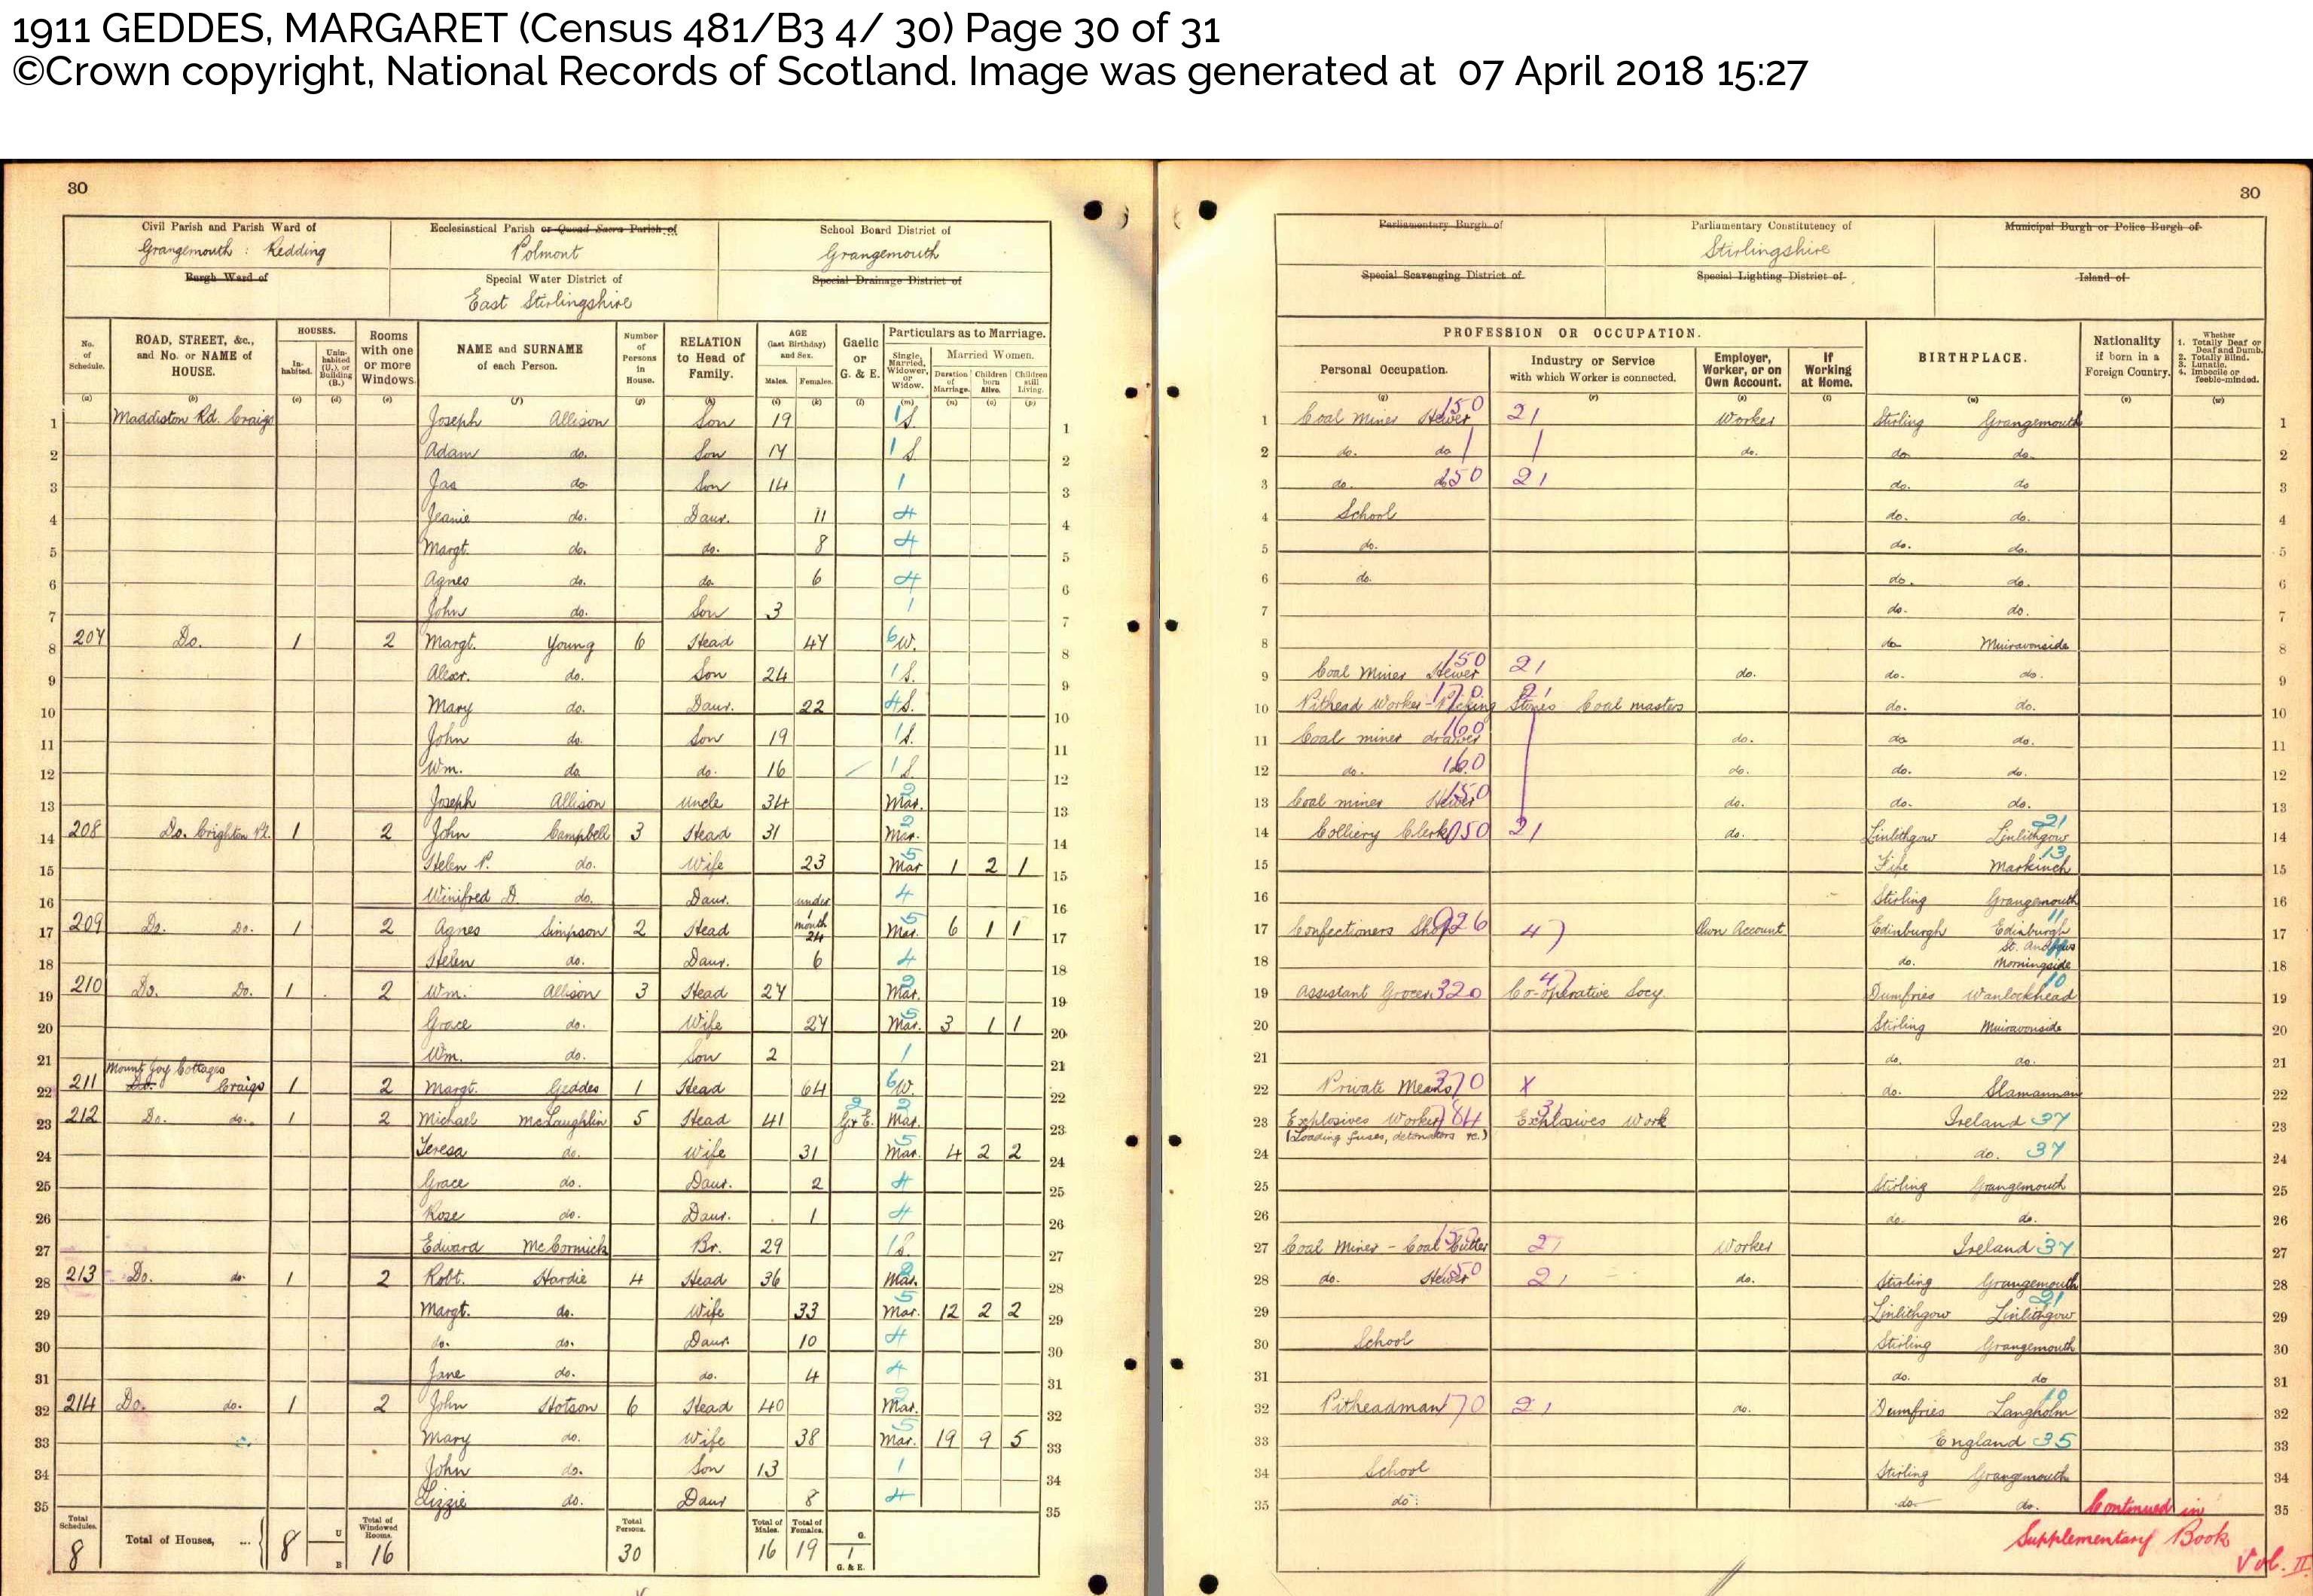 1911 GEDDES, MARGARET (Census 481/B3 4/ 30) Page 30 of 31
©Crown copyright, National Records of Scotland. Image was generated at 07 April 2018 15:27
30
Civil Parish and Parish Ward of Grangemouth : Redding
Ecclesiastical Parish or Quoad Sacra Parish of Polmont
School Board District of Grangemouth
Burgh Ward of
Special Water District of East Stirlingshire
Special Drainage District of
No. of Schedule. ROAD, STREET, &c., and No. or NAME of HOUSE. HOUSES. Inhabited. Uninhabited (U.), or Building (B.) Rooms with one or more Windows. NAME and SURNAME of each Person. Number of Persons in House. RELATION to Head of Family. AGE (last Birthday) and Sex. Males. Females. Gaelic or G. & E. Particulars as to Marriage. Single, Married, Widower, or Widow. Married Women. Duration of Marriage. Children born Alive. Children still Living.
(a) (b) (c) (d) (e) (f) (g) (h) (i) (k) (l) (m) (n) (o) (p)
1 Maddiston Rd. Craigs Joseph Allison Son 19 1 S. 1
2 Adam do. Son 17 1 S. 2
3 Jas do Son 14 1 3
4 Jeanie do. Daur. 11 4 4
5 Margt. do. do. 8 4 5
6 Agnes do. do. 6 4 6
7 John do. Son 3 1 7
8 207 Do. 1 2 Margt. Young 6 Head 47 6 W. 8
9 Alexr. do. Son 24 1 S. 9
10 Mary do. Daur. 22 4 S. 10
11 John do. Son 19 1 S. 11
12 Wm. do. do. 16 1 S. 12
13 Joseph Allison Uncle 34 2 Mar. 13
14 208 Do. Crighton Pl. 1 2 John Campbell 3 Head 31 2 Mar. 14
15 Helen P. do. Wife 23 5 Mar 1 2 1 15
16 Winifred D. do. Daur. under 1 month 4 16
17 209 Do. Do. 1 2 Agnes Simpson 2 Head 24 5 Mar. 6 1 1 17
18 Helen do. Daur. 6 4 18
19 210 Do. Do. 1 2 Wm. Allison 3 Head 27 2 Mar. 19
20 Grace do. Wife 27 5 Mar. 3 1 1 20
21 Wm. do. Son 2 1 21
Mount Joy Cottages
22 211 Do. Craigs 1 2 Margt. Geddes 1 Head 64 6 W. 22
23 212 Do. do. 1 2 Michael McLaughlin 5 Head 41 2 G & E. 2 Mar. 23
24 Teresa do. Wife 31 5 Mar. 4 2 2 24
25 Grace do. Daur. 2 4 25
26 Rose do. Daur. 1 4 26
27 Edward McCormick Br. 29 1 S. 27
28 213 Do. do. 1 2 Robt. Hardie 4 Head 36 2 Mar. 28
29 Margt. do. Wife 33 5 Mar. 12 2 2 29
30 do. do. Daur. 10 4 30
31 Jane do. do. 4 4 31
32 214 Do. do. 1 2 John Hotson 6 Head 40 2 Mar. 32
33 Mary do. Wife 38 5 Mar. 19 9 5 33
34 John do. Son 13 1 34
35 Lizzie do. Daur 8 4 35
Total Schedules. 8 Total of Houses, ... 8 U B Total of Windowed Rooms. 16 Total Persons. 30 Total of Males. 16 Total of Females. 19 G. 1 G. & E.
30
Parliamentary Burgh of
Parliamentary Constitutency of Stirlingshire
Municipal Burgh or Police Burgh of
Special Scavenging District of
Special Lighting District of
Island of
PROFESSION OR OCCUPATION. Personal Occupation. Industry or Service with which Worker is connected. Employer, Worker, or on Own Account. If Working at Home. BIRTHPLACE. Nationality if born in a Foreign Country. Whether 1. Totally Deaf or Deaf and Dumb. 2. Totally Blind. 3. Lunatic. 4. Imbecile or feeble-minded.
(q) (r) (s) (t) (u) (v) (w)
1 Coal Miner Hewer 150 21 Worker Stirling Grangemouth 1
2 do. do do. do. do. 2
3 do. do 150 21 do. do 3
4 School do. do. 4
5 do. do. do. 5
6 do. do. do. 6
7 do. do. 7
8 do Muiravonside 8
9 Coal Miner Hewer 150 21 do. do. do. 9
10 Pithead Worker - Picking Stones Coal masters 170 21 do. do. 10
11 Coal miner drawer 160 do. do do. 11
12 do. do. 160 do. do. do. 12
13 Coal miner Hewer 150 do. do. do. 13
14 Colliery Clerk 150 21 do. Linlithgow Linlithgow 21 14
15 Fife Markinch 13 15
16 Stirling Grangemouth 16
17 Confectioners Shop 926 47 Own Account Edinburgh Edinburgh St. Andrews 11 17
18 do. Morningside 11 18
19 Assistant Grocer 320 Co-operative Socy. 47 Dumfries Wanlockhead 10 19
20 Stirling Muiravonside 20
21 do. do. 21
22 Private Means 370 X do. Slamannan 22
23 Explosives Worker 784 Explosives Work 31 Ireland 37 23
(Loading fuses, detonators &c.)
24 do. 37 24
25 Stirling Grangemouth 25
26 do. do. 26
27 Coal Miner - Coal Cutter 150 21 Worker Ireland 37 27
28 do. Hewer 150 21 do. Stirling Grangemouth 28
29 Linlithgow Linlithgow 21 29
30 School Stirling Grangemouth 30
31 do. do 31
32 Pitheadman 170 21 do. Dumfries Langholm 10 32
33 England 35 33
34 School Stirling Grangemouth 34
35 do. do. do. 35
Continued in
Supplementary Book
Vol. II